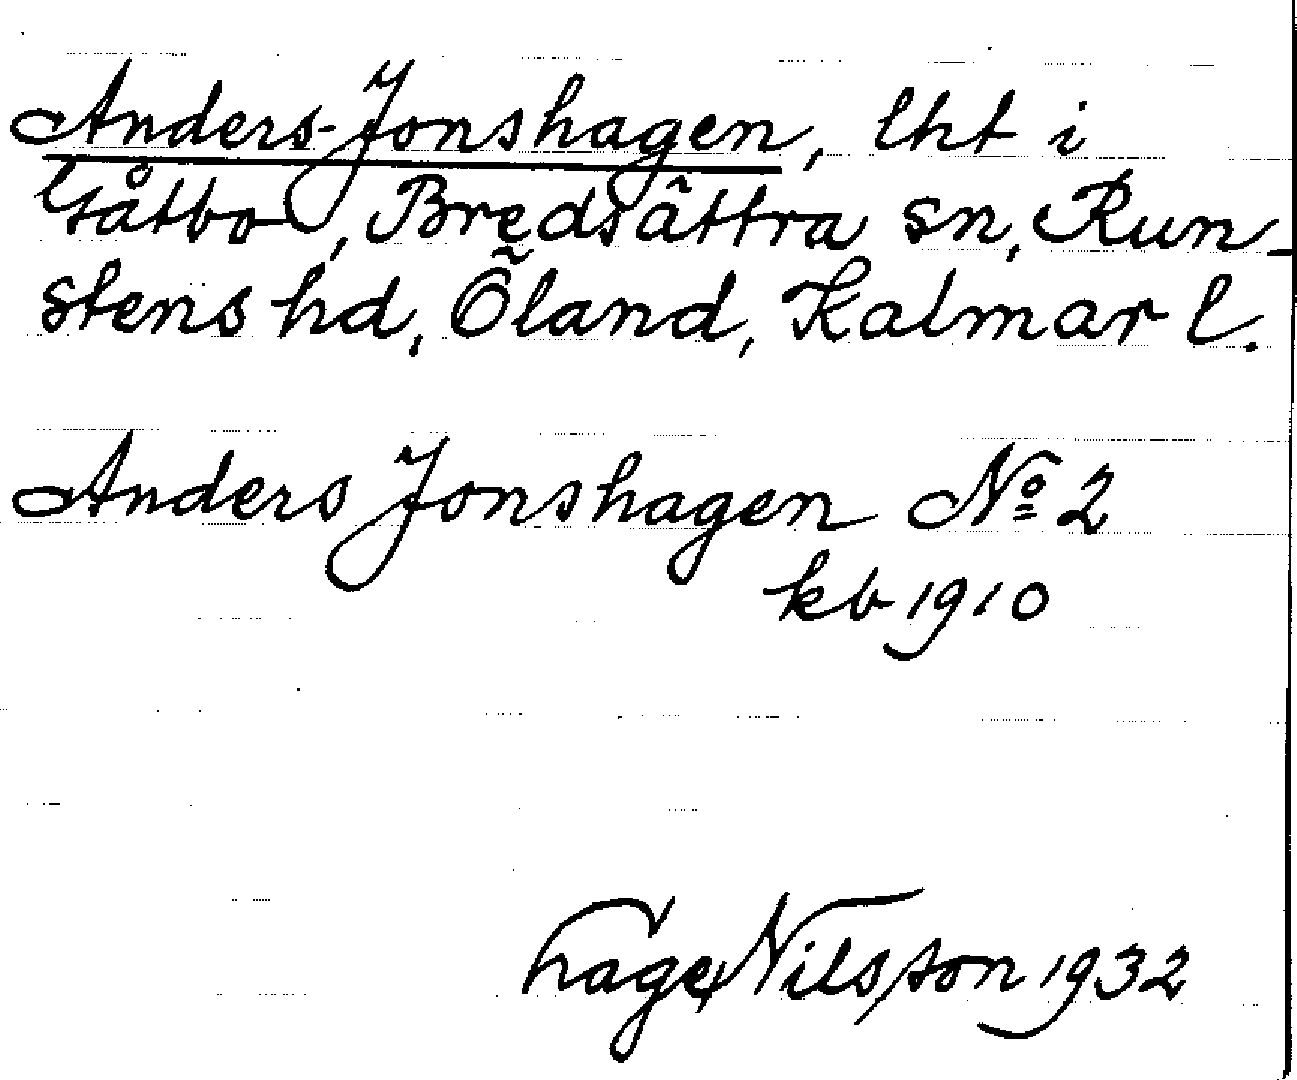 Anders-Jonshagen, lht i
Gåtbo, Bredsättra sn, Run-
stens hd, Öland, Kalmar l.
Anders Jonshagen No 2
kb 1910
Tage Nilsson 1932